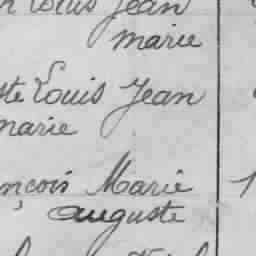 Louis Jean
marie
ste Louis Jean
marie
nçois Marie 1
auguste